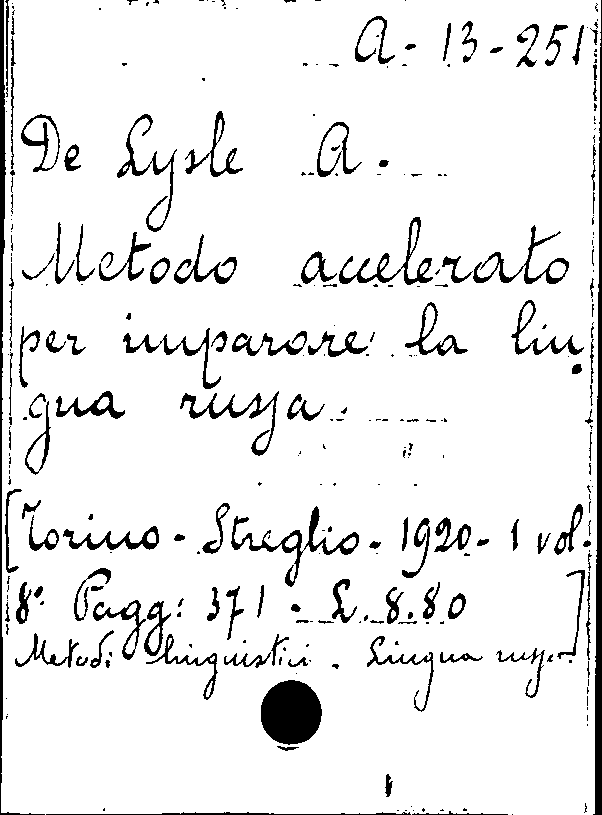 A - 13 - 251
De Lysle A.
Metodo accelerato
per imparare la lin
gua russa.
[Torino - Streglio - 1920 - 1 vol.
8° Pagg: 371 - L. 8.80]
Metodi linguistici - Lingua russa